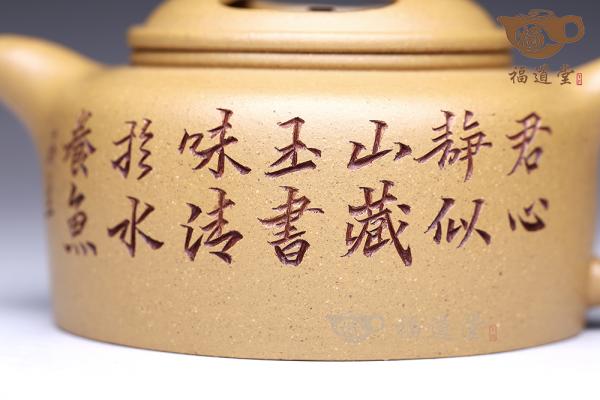 君心
静似
山藏
玉書
味清
於水
養魚
福道堂
福道堂